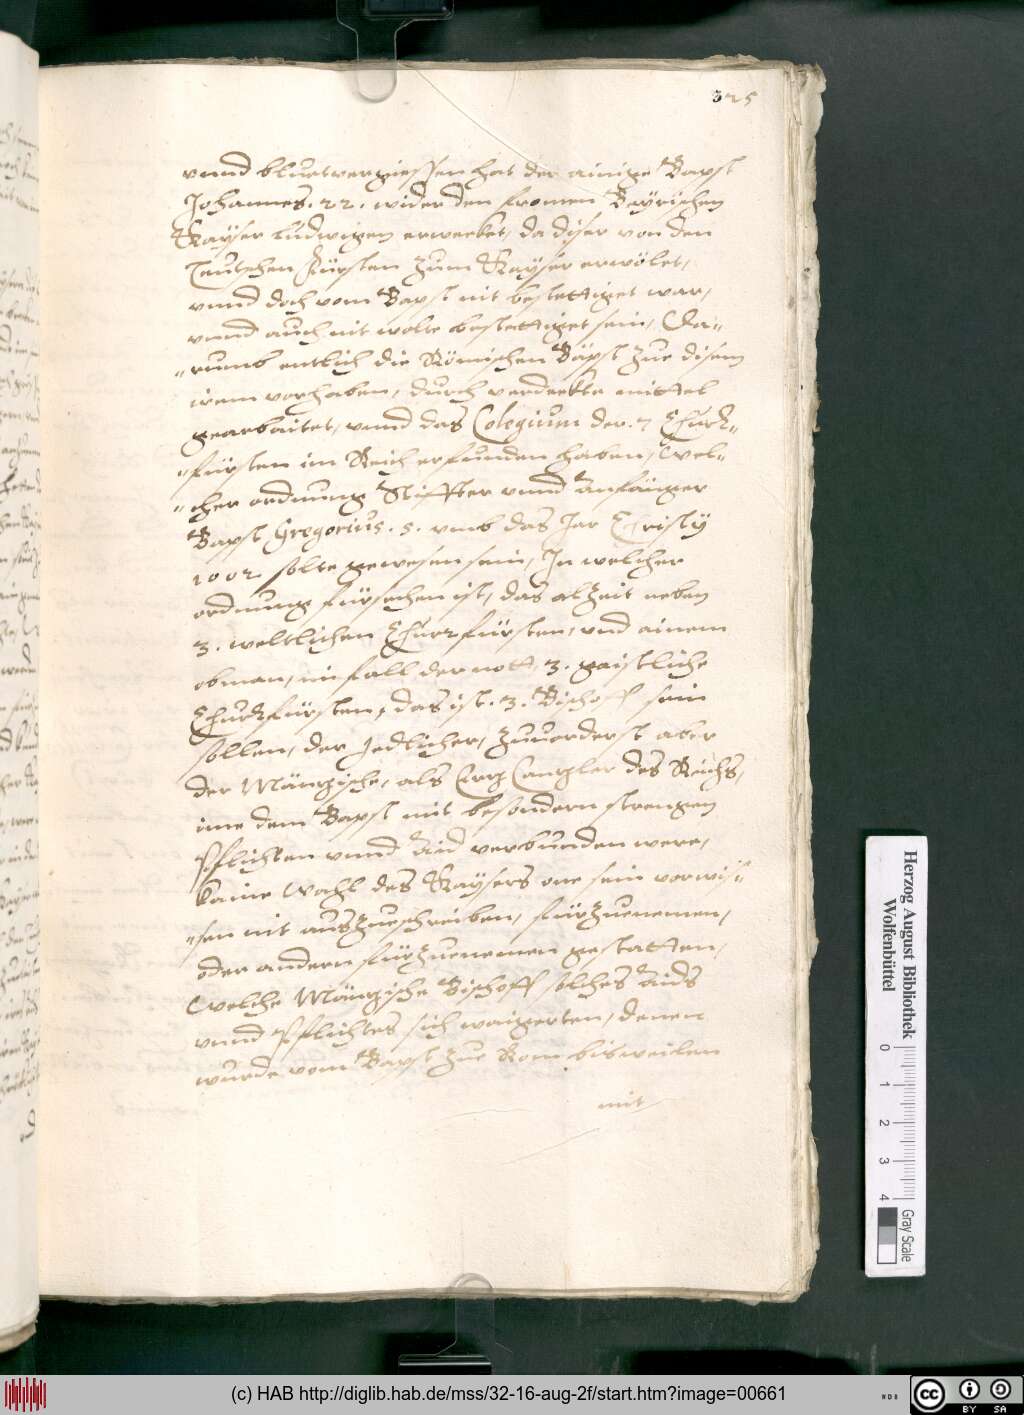 325
vnnd bluetvergiessen hat der ainige Bapst
Johannes. 22. wider den fromen Bayrischen
Kayser Ludwigen erwecket, da diser von den
Teutschen Fürsten zum Kayser erwölet,
vnnd doch vom Bapst nit bestettiget war,
vnnd auch nit wolte bestettiget sein, Da„
„rumb entlich die Römischen Bäpst zue disem
irem vorhaben, durch verdeckte mittel
gearbaitet, vnnd das Colegium der. 7 Churz„
„fürsten im Reich erfunden haben, Wel„
„cher ordnung Stiffter vnnd Anfänger
Bapst Gregorius. 5. vmb das Jar Christy
1002. solte gewesen sein, In welcher
ordnung fürsehen ist, das alzeit neben
3. weltlichen Churzfürsten, vnd ainem
obman, im fall der nott, 3. gaistliche
Churzfürsten, das ist. 3. Bischoff sein
sollen, der Jedlicher, zuuorderst aber
der Mäntzische, als Ertz Cantzler des Reichs,
ime dem Bapst mit besondern strengen
Pflichten vnnd Aid verbunden were,
kaine Wahl des Kaysers one sein vorwis„
„sen nit auszueschreiben, fürzuenemen,
oder andern fürzuenemen gestatten,
Welche Mäntzische Bischoff solches Aids
vnnd Pflichtes sich waigerten, denen
wurde vom Bapst zue Rom bisweilen
mit
Herzog August Bibliothek
Wolfenbüttel
0 1 2 3 4
Gray Scale
(c) HAB http://diglib.hab.de/mss/32-16-aug-2f/start.htm?image=00661
WDB
cc BY SA